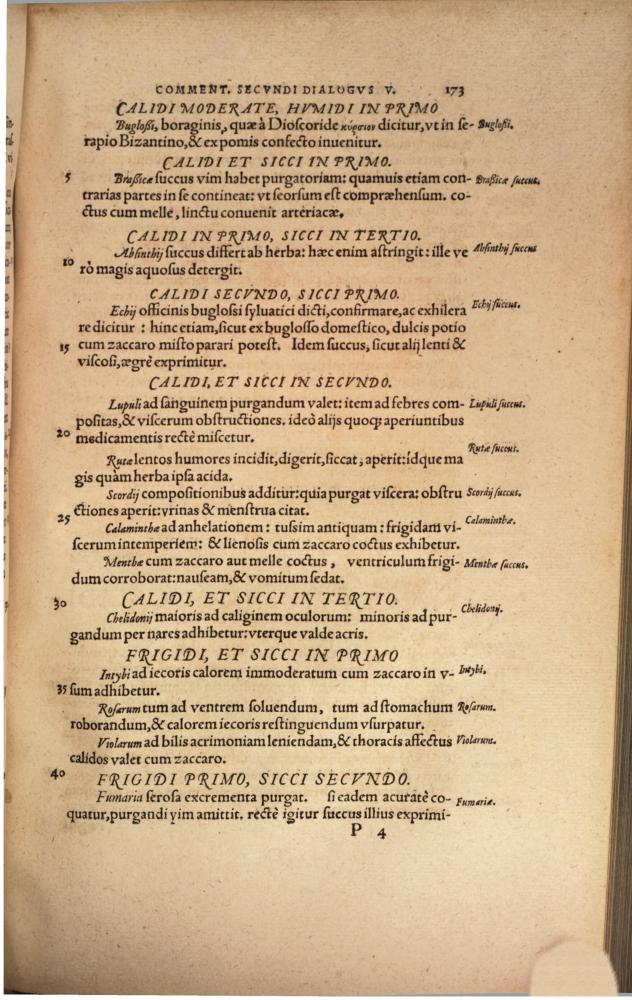 COMMENT. SECVNDI DIALOGVS V. 173
CALIDI MODERATE, HVMIDI IN PRIMO
Bugloßi, boraginis, quæ à Dioscoride κύρσιον dicitur, vt in se- Bugloßi.
rapio Bizantino, & ex pomis confecto inuenitur.
CALIDI ET SICCI IN PRIMO.
5 Braßicæ succus vim habet purgatoriam: quamuis etiam con- Braßicæ succus.
trarias partes in se contineat: vt seorsum est compræhensum. co-
ctus cum melle, linctu conuenit arteriacæ.
CALIDI IN PRIMO, SICCI IN TERTIO.
Absinthij succus differt ab herba: hæc enim astringit: ille ve Absinthij succus
10 rò magis aquosus detergit.
CALIDI SECVNDO, SICCI PRIMO.
Echij officinis buglossi syluatici dicti, confirmare, ac exhilera Echij succus.
re dicitur : hinc etiam, sicut ex buglosso domestico, dulcis potio
15 cum zaccaro misto parari potest. Idem succus, sicut alij lenti &
viscosi, ægrè exprimitur.
CALIDI, ET SICCI IN SECVNDO.
Lupuli ad sanguinem purgandum valet: item ad febres com- Lupuli succus.
positas, & viscerum obstructiones. ideò alijs quoq; aperiuntibus
20 medicamentis rectè miscetur.
Rutæ succus.
Rutæ lentos humores incidit, digerit, siccat, aperit: idque ma
gis quàm herba ipsa acida.
Scordij compositionibus additur: quia purgat viscera: obstru Scordij succus.
ctiones aperit: vrinas & menstrua citat.
25 Calaminthæ ad anhelationem : tussim antiquam : frigidam vi- Calaminthæ.
scerum intemperiem: & lienosis cum zaccaro coctus exhibetur.
Menthæ cum zaccaro aut melle coctus, ventriculum frigi- Menthæ succus.
dum corroborat: nauseam, & vomitum sedat.
30 CALIDI, ET SICCI IN TERTIO.
Chelidonij maioris ad caliginem oculorum: minoris ad pur- Chelidonij.
gandum per nares adhibetur: vterque valde acris.
FRIGIDI, ET SICCI IN PRIMO
Intybi ad iecoris calorem immoderatum cum zaccaro in v- Intybi.
35 sum adhibetur.
Rosarum tum ad ventrem soluendum, tum ad stomachum Rosarum.
roborandum, & calorem iecoris restinguendum vsurpatur.
Violarum ad bilis acrimoniam leniendam, & thoracis affectus Violarum.
calidos valet cum zaccaro.
40 FRIGIDI PRIMO, SICCI SECVNDO.
Fumariæ serosa excrementa purgat. si eadem acuratè co- Fumariæ.
quatur, purgandi vim amittit. rectè igitur succus illius exprimi-
P 4